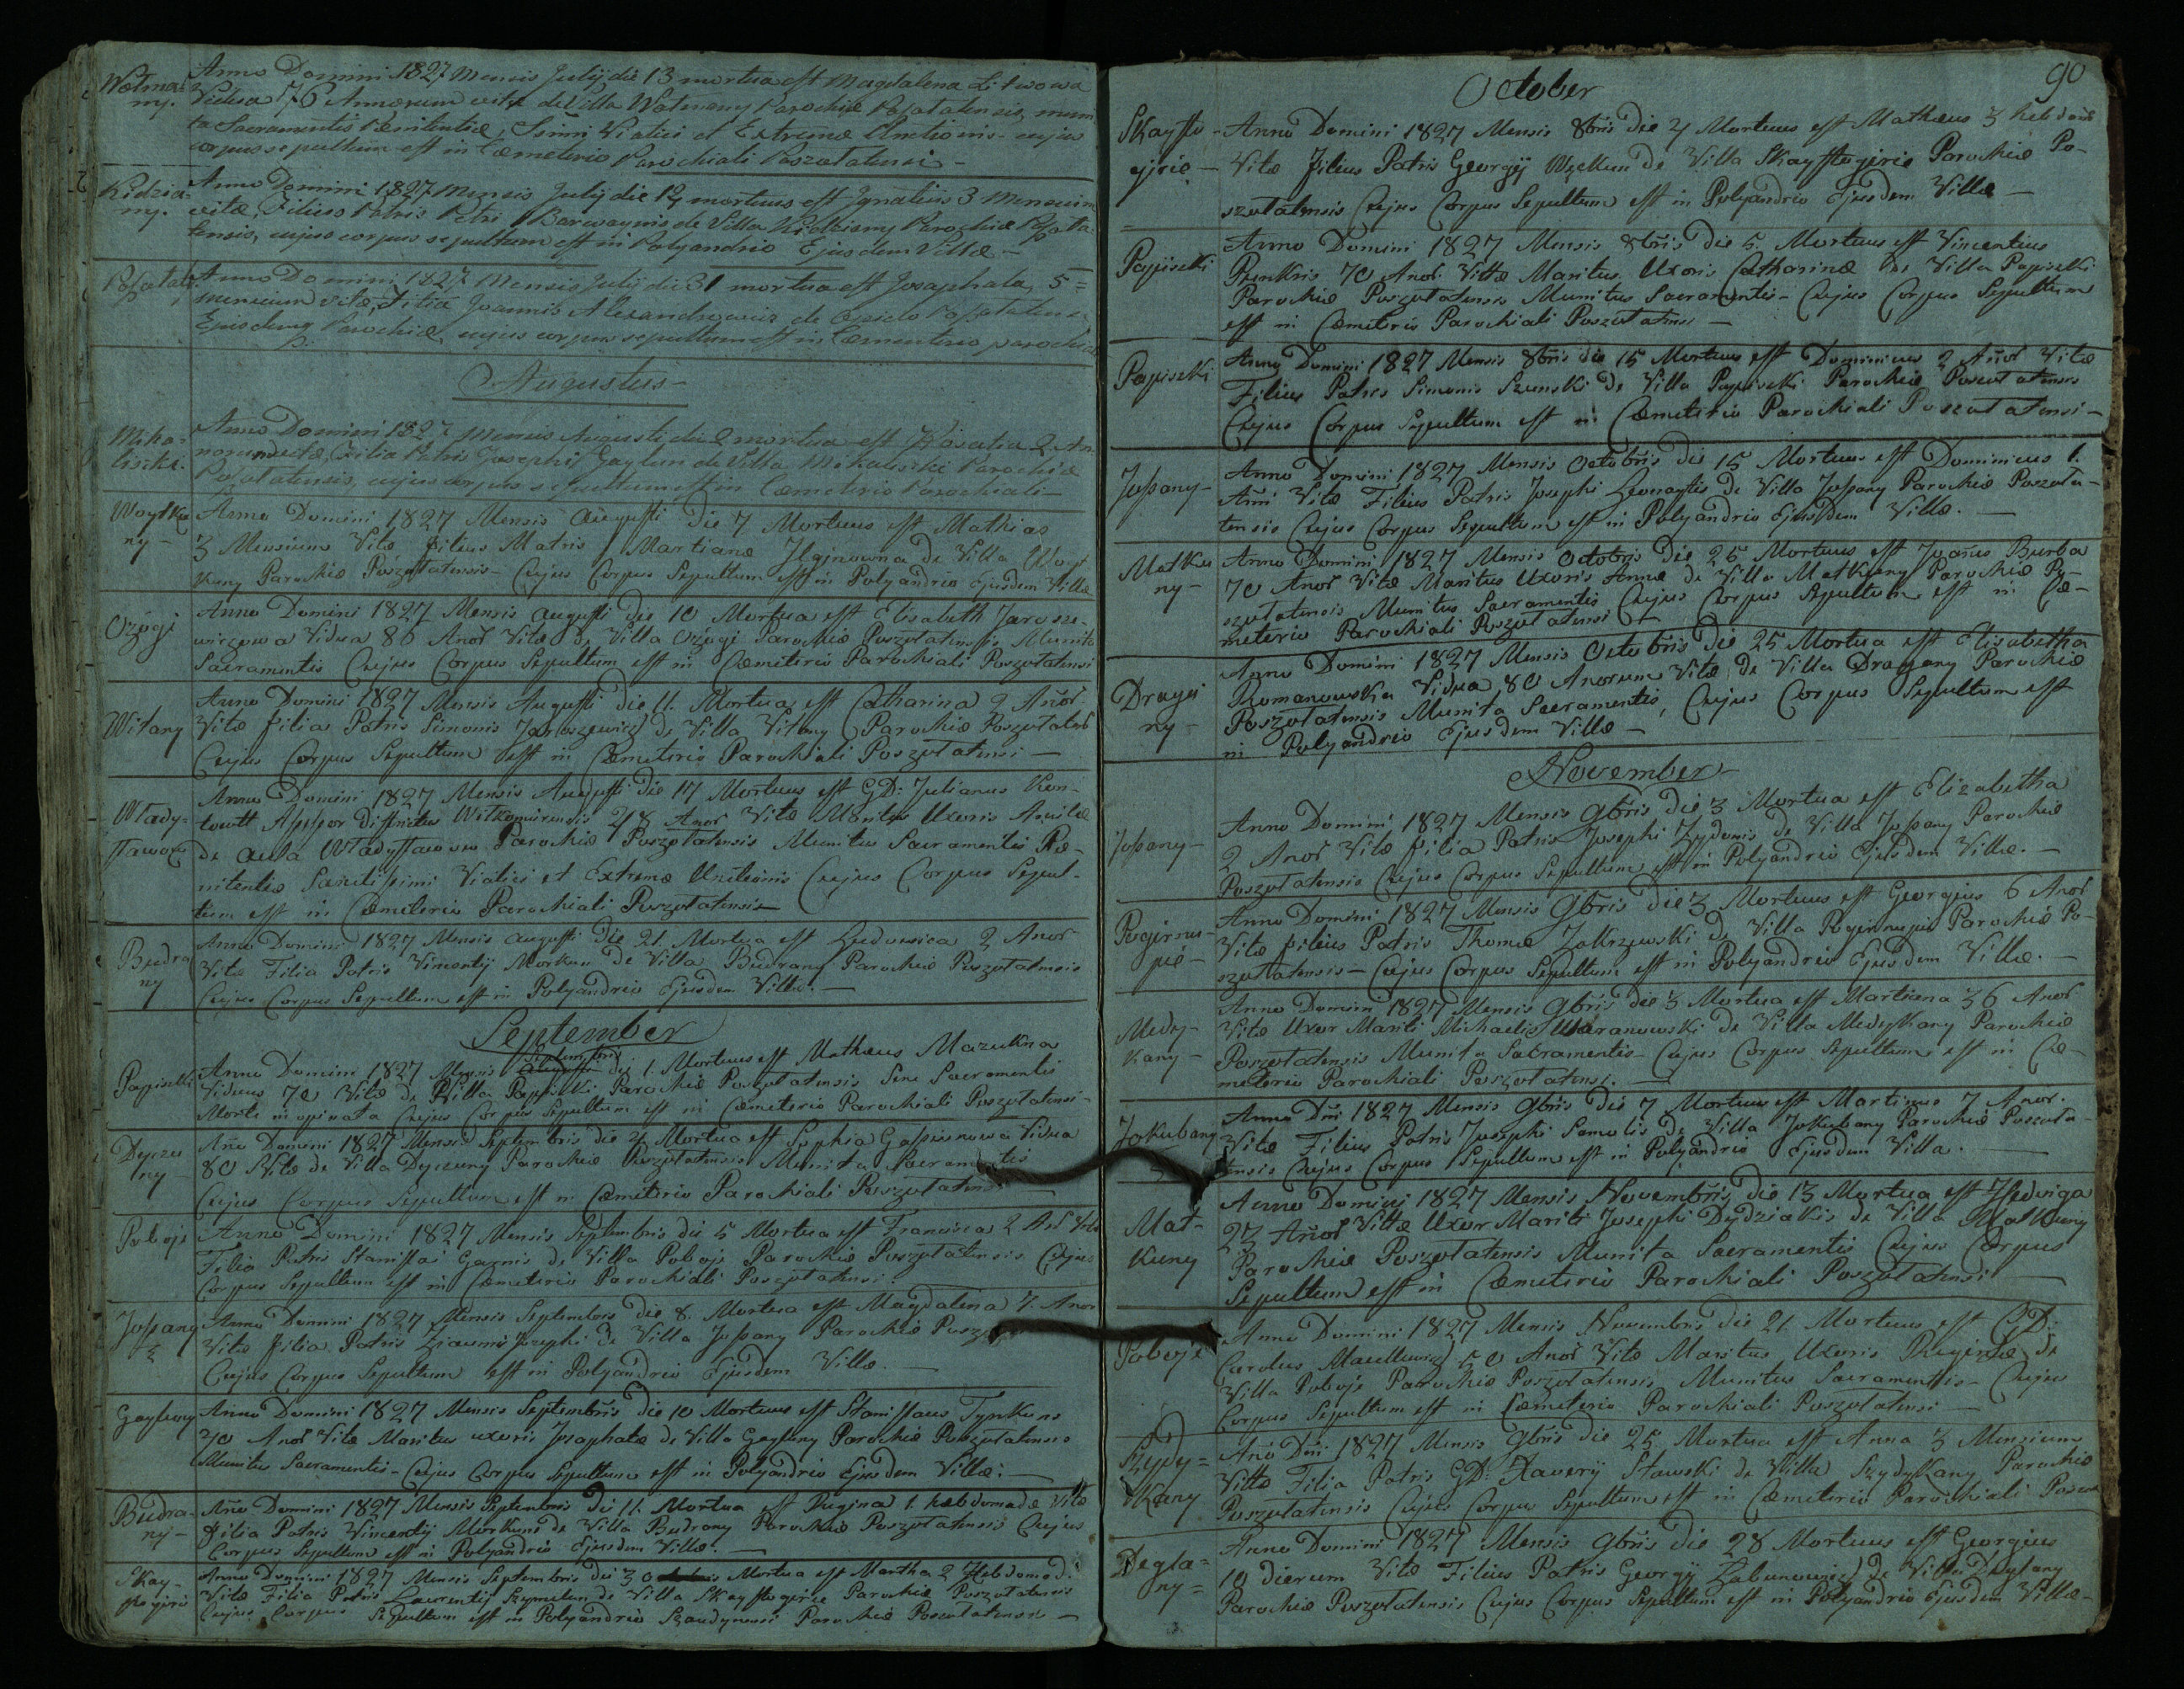 Anno Domini 1827 Mensis Julij die 13 mortua est Magdalena Litwowa
Vidua 76 Annorum vitæ de Villa Watmany Parochiæ Poszatatensis, muni
ta Sacramentis Pænitentiæ, Ssimi Viatici et Extremæ Unctionis cujus
corpus sepultum est in Cæmeterio Parochiali Poszatatensi
Kidzia-
ny.
Anno Domini 1827 Mensis Julij die 14 mortuus est Ignatius 3 Mensium
vitæ, Filius Patris Petri de Villa Kidziany Parochiæ
tensis, cujus corpus sepultum est in Polyandrio Ejusdem Villæ
Anno Domini 1827 Mensis Julij die 31 mortua est Josaphata, 5
mensium vitæ, Filia Joannis Alexandrowicz de
Ejusdemq Parochiæ, cujus corpus sepultum est in Cæmenterio parochiali
Augustus
Mika-
liszki.
Anno Domini 1827 Mensis Augusti die 2 mortua est Rosalia 2 An
norum vitæ, Filia Patris Josephi Gaylun de Villa Mikaliszki Parochiæ
cujus corpus sepultum est in Cæmeterio Parochiali
Woytku
ny
Anno Domini 1827 Mensis Augusti die 7 Mortuus est Mathias
3 Mensium Vitæ filius Matris Martianæ Ilginowna de Villa Woyt
kuny Parochiæ Poszolatensis Cujus Corpus Sepultum est in Polyandrio Ejusdem Villæ
Ozogi
Anno Domini 1827 Mensis Augusti die 10 Mortua est Elisabeth Jarosze-
wiczowa Vidua 86 Anor̃ Vitæ de Villa Ozogi Parochiæ Poszolatensis Munita
Sacramentis Cujus Corpus Sepultum est in Cæmiterio Parochiali Poszolatensi
Witany
Anno Domini 1827 Mensis Augusti die 11. Mortua est Catharina 2 Añor̃
Vitæ filia Patris Simonis Jaroszewicz de Villa Witany Parochiæ
Cujus Corpus Sepultum est in Cæmeterio Parochiali Poszolatensi
Wlady-
Anno Domini 1827 Mensis Augusti die 17 Mortuus est GD: Julianus Kon-
towtt Assessor Districtus Wilkomirensis 28 Anor̃ Vitæ Maritus Uxoris
de Aula Parochiæ Poszolatensis Munitus Sacramentis Pæ-
nitentiæ Sanctissimi Viatici et Extremæ Unctionis Cujus Corpus Sepul-
tum est in Cæmiterio Parochiali Poszolatensis
Budra
ny
Anno Domini 1827 Mensis Augusti Die 21. Mortua est Ludowica 2 Anor̃
Vitæ Filia Patris Vincentij Morkun de Villa Budrany Parochiæ Poszolatensis
Cujus Corpus Sepultum est in Polyandrio Ejusdem Villæ.
September
Papiszki
Anno Domini 1827 Mensis Septembris die 1. Mortuus est Mathæus Mazukna
Viduus 70 Vitæ de Villa Papiszki Parochiæ Poszolatensis Sine Sacramentis
Morte inopinata Cujus Corpus Sepultum est in Cæmeterio Parochiali Poszolatensi
Dyrzu
ny
Año Domini 1827 Mensis Septembris die 4 Mortua est Sophia Vidua
80 Vitæ de Villa Parochiæ Poszolatensis Munita Sacramentis
Cujus Corpus Sepultum est in Cæmeterio Parochiali
Poboje
Anno Domini 1827 Mensis Septembris die 5 Mortua est Francisca 2
Filia Patris Stanislai Garnis de Villa Poboje Parochiæ Poszolatensis Cujus
Corpus Sepultum est in Cæmeterio Parochiali Poszolatensi.
Jossany
Anno Domini 1827 Mensis Septembris die 8. Mortua est Magdalena 7. Anor
Vitæ filia Patris Josephi de Villa Jossany Parochiæ
Cujus Corpus Sepultum est in Polyandrio Ejusdem Villæ.
Gayluny
Anno Domini 1827 Mensis Septembris die 10 Mortuus est Stanislaus Tynkuns
70 Anor̃ Vitæ Maritus uxoris Josaphatæ de Villa Gayluny Parochiæ Poszolatensis
Munitus Sacramentis Cujus Corpus Sepultum est in Polyandrio Ejusdem Villæ.
Budra-
ny
Año Domini 1827 Mensis Septembris Die 11. Mortua est Regina 1. hebdomadæ Vitæ
Filia Patris Vincentij Morkuns de Villa Budrany Parochiæ Poszolatensis Cujus
Corpus Sepultum est in Polyandrio Ejusdem Villæ.
Skay-
Anno Domini 1827 Mensis Septembris die 30 Mortua est Martha 2 Hebdomad.
Vitæ Filia Patris Laurentij de Villa Skaystogirie Parochiæ Poszolatensis
Cujus Corpus Sepultum est in Polyandrio Parochiæ Poszolatensis
90
October
Skaysto-
girie
Anno Domini 1827 Mensis 8bris Die 4 Mortuus est Mathæus 3 hebdom
Vitæ filius Patris Georgij de Villa Skaystogirie Parochiæ Po-
szolatensis Cujus Corpus Sepultum est in Polyandrio Ejusdem Villæ
Papiszki
Anno Domini 1827 Mensis 8bris Die 5. Mortuus est Vincentius
Punkris 70 Anor̃. Vittæ Maritus Uxoris Catharinæ De Villa Papiszki
Parochiæ Poszolatensis Munitus Sacramentis Cujus Corpus Sepultum
est in Cæmiterio Parochiali Poszolatensi
Papiszki
Anno Domini 1827 Mensis 8bris die 15 Mortuus est Dominicus 2 Añor̃ Vitæ
Filius Patris Simonis Szumski de Villa Papiszki Parochiæ Poszolatensis
Cujus Corpus Sepultum est in Cæmeterio Parochiali Poszolatensi
Jossany
Anno Domini 1827 Mensis Octobris die 15 Mortuus est Dominicus 1.
Añi Vitæ Filius Patris Josephi Leonaytis de Villa Jossany Parochiæ Poszola-
tensis Cujus Corpus Sepultum est in Polyandrio Ejusdem Villæ.
Matku
ny
Anno Domini 1827 Mensis Octobris Die 25 Mortuus est Joañes Burba
70 Anor̃ Vitæ Maritus Uxoris Annæ de Villa Matkuny Parochiæ Po-
szolatensis Munitus Sacramentis Cujus Corpus Sepultum est in Cæ-
meterio Parochiali Poszolatensi
Dragu
ny
Anno Domini 1827 Mensis Octobris Die 25 Mortua est Elisabetha
Romanowska Vidua 80 Anorum Vitæ de Villa Draguny Parochiæ
Poszolatensis Munita Sacramentis, Cujus Corpus Sepultum est
in Polyandrio Ejusdem Villæ
November
Jossany
Anno Domini 1827 Mensis 9bris die 3 Mortua est Elizabetha
2 Anor̃ Vitæ filia Patris Josephi Zydonis de Villa Jossany Parochiæ
Poszolatensis Cujus Corpus Sepultum est in Polyandrio Ejusdem Villæ.
Pogirnu-
pie
Anno Domini 1827 Mensis 9bris Die 3 Mortuus est Georgius 6 Anor̃
Vitæ filius Patris Thomæ Zakrzewski de Villa Pogirnupie Parochiæ Po-
szolatensis Cujus Corpus Sepultum est in Polyandrio Ejusdem Villæ.
Medy-
kany
Anno Domini 1827 Mensis 9bris die 3 Mortua est Martiana 36 Anor̃
Vitæ Uxor Mariti Michaelis de Villa Medykany Parochiæ
Poszolatensis Munita Sacramentis Cujus Corpus Sepultum est in Cæ-
meterio Parochiali Poszolatensi.
Jakubany
Anno Dñi 1827 Mensis 9bris die 7 Mortuus est Martinus 7 Anor.
Vitæ Filius Patris Josephi Samulis de Villa Jakubany Parochiæ Poszola-
tensis Cujus Corpus Sepultum est in Polyandrio Ejusdem Villa.
Mat-
kuny
Anno Domini 1827 Mensis Novembris die 13 Mortua est Hedviga
27 Añor̃ Vittæ Uxor Mariti Josephi Dydziakis de Villa Matkuny
Parochiæ Poszolatensis Munita Sacramentis Cujus Corpus
Sepultum est in Cæmeterio Parochiali Poszolatensi
Poboje
Anno Domini 1827 Mensis Novembris die 21 Mortuus est GD:
Carolus 50 Anor̃ Vitæ Maritus Uxoris Reginæ de
Villa Poboje Parochiæ Poszolatensis Munitus Sacramentis Cujus
Corpus Sepultum est in Cæmeterio Parochiali Poszolatensi
Szydy-
kany
Año Dñi 1827 Mensis 9bris die 25 Mortua est Anna 3 Mensium
Vittæ Filia Patris GD: Xaverij Stawski de Villa Szydykany Parochiæ
Poszolatensis Cujus Corpus Sepultum est in Cæmeterio Parochiali
Degla-
ny
Anno Domini 1827 Mensis 9bris die 28 Mortuus est Georgius
10 dierum Vitæ Filius Patris Georgij Labunowicz de Villa Deglany
Parochiæ Poszolatensis Cujus Corpus Sepultum est in Polyandrio Ejusdem Villæ